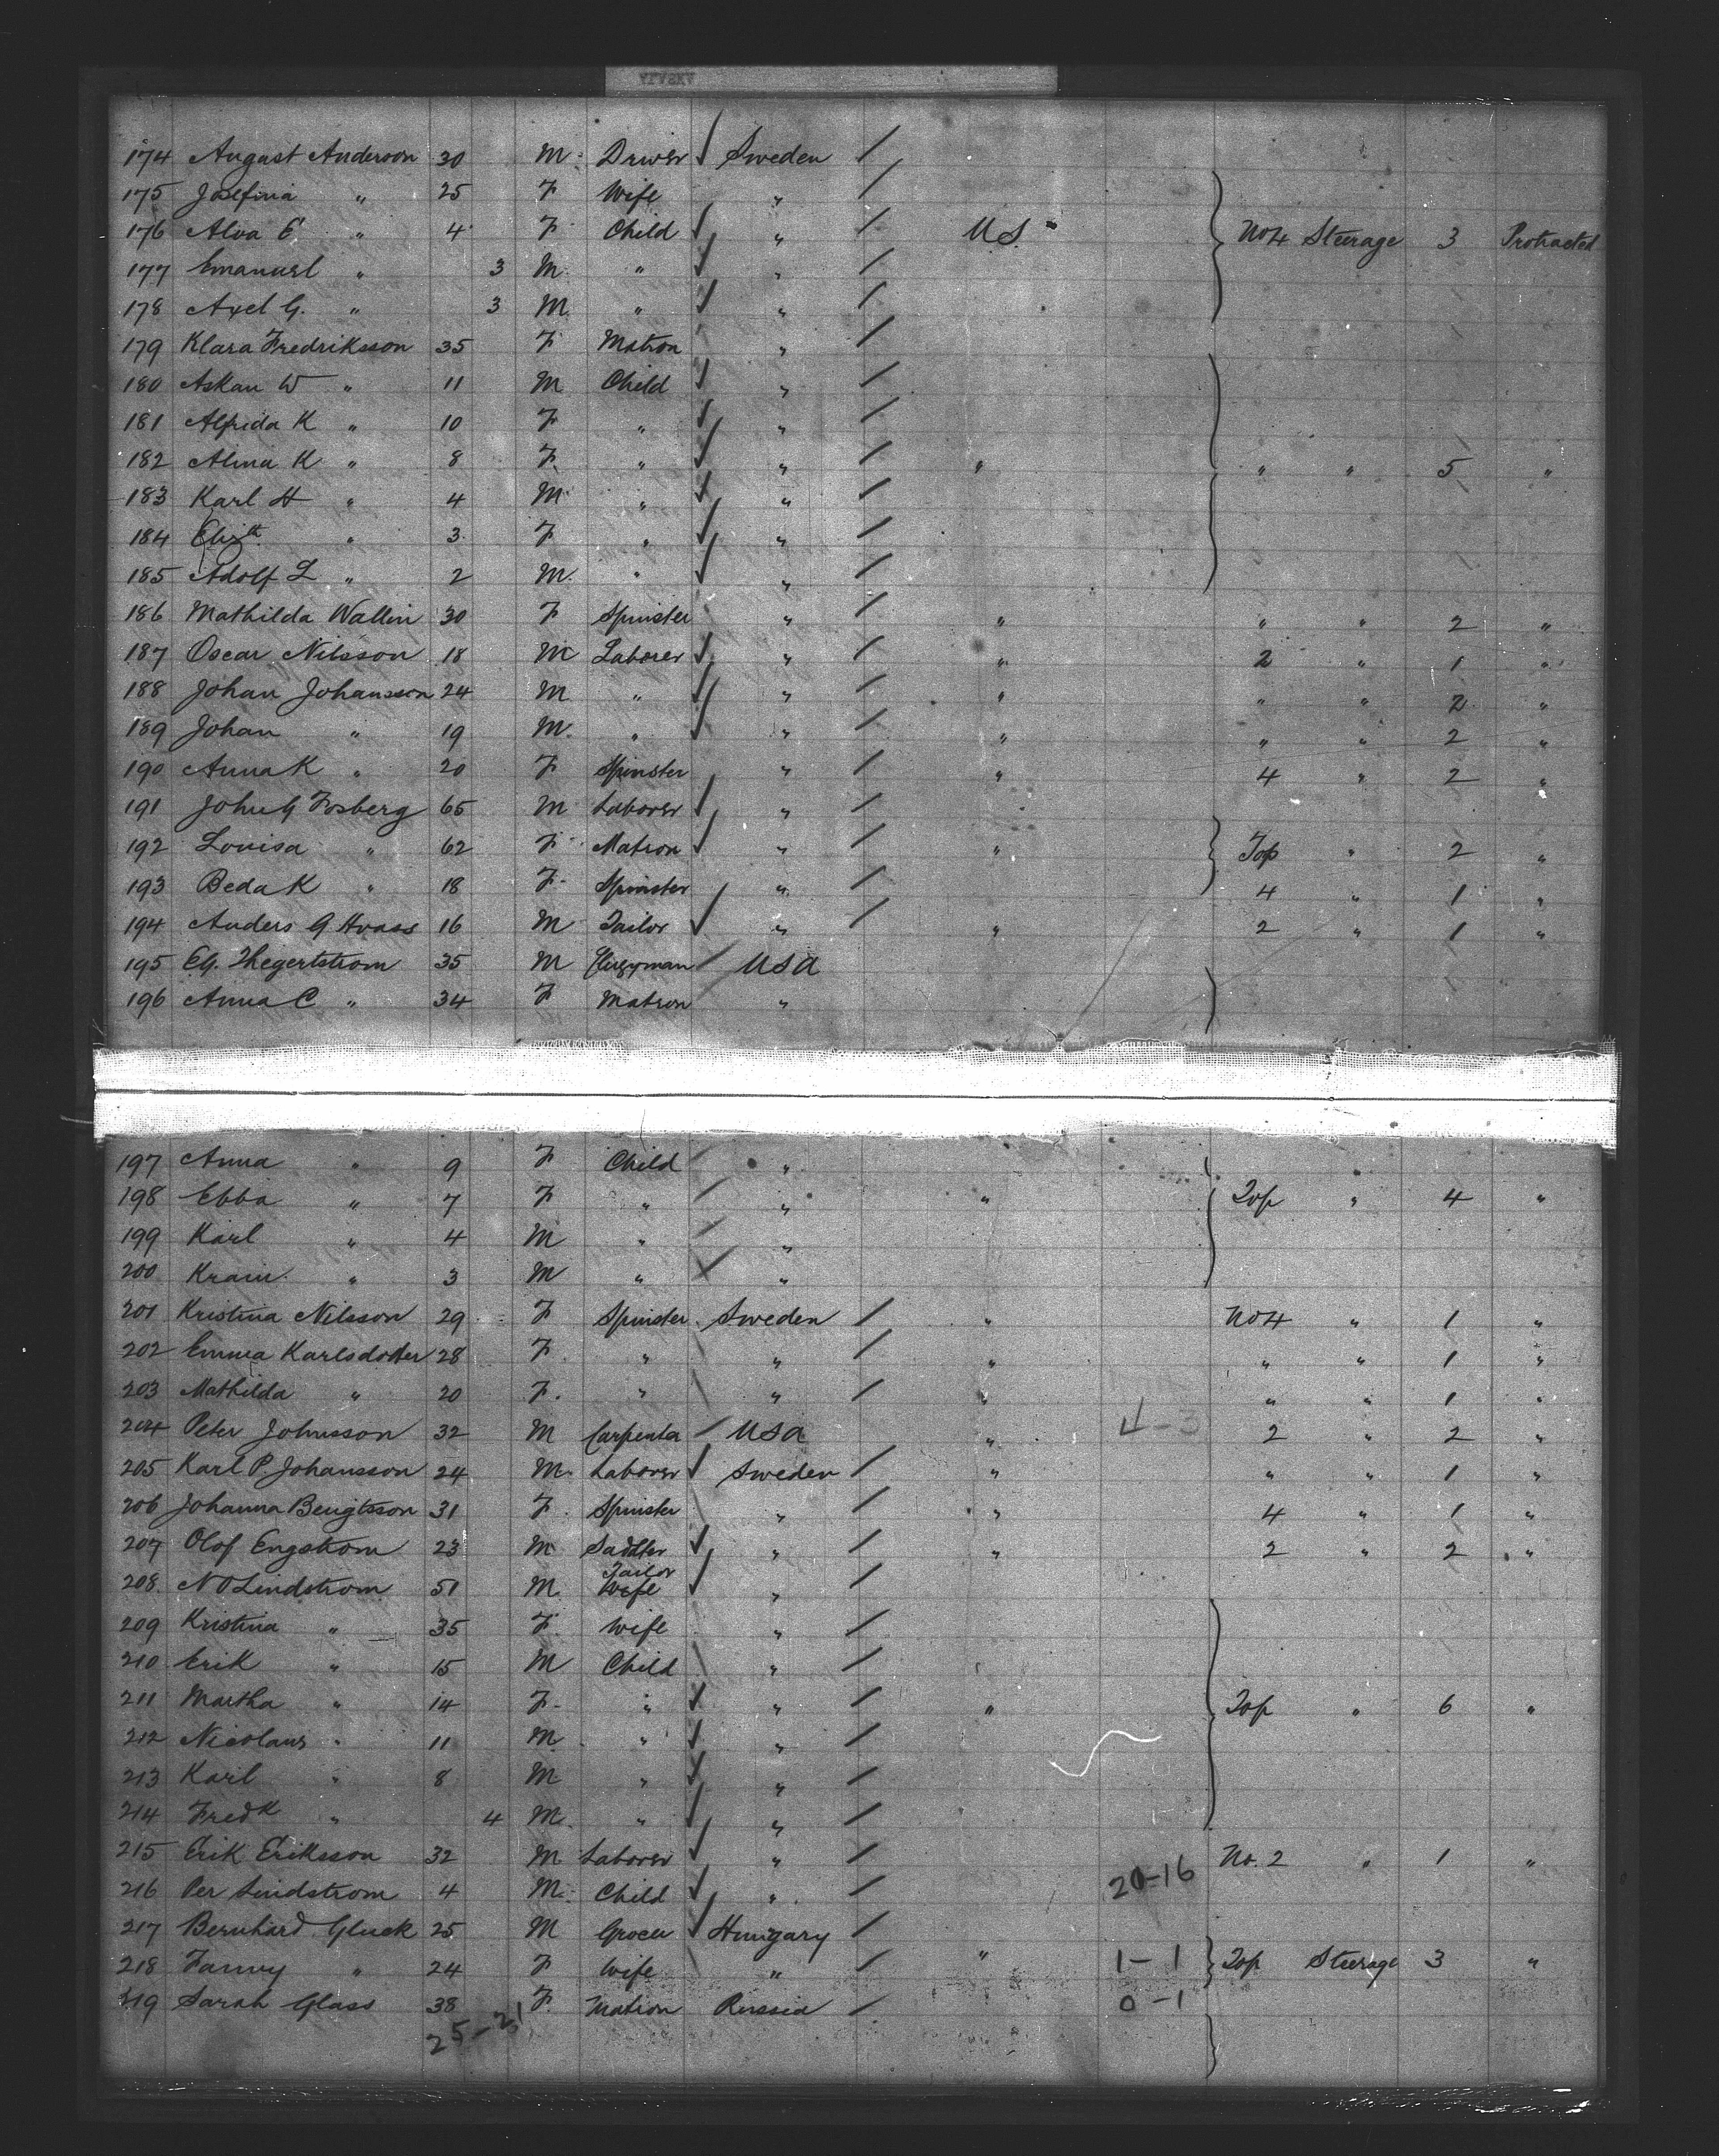 174 August Anderson 30 M. Driver Sweden
175 Josefina " 25 F Wife "
176 Alva E. " 4 F Child " U.S. " No 4 Steerage 3 Protracted
177 Emanuel " 3 M. " "
178 Axel G. " 3 M. " "
179 Klara Fredriksson 35 F Matron "
180 Askan W " 11 M Child "
181 Alfrida K " 10 F " "
182 Alma K " 8 F. " " " " " 5 "
183 Karl H " 4 M. " "
184 Elizth. " 3 F " "
185 Adolf L " 2 M. " "
186 Mathilda Wallin 30 F Spinster " " " " 2 "
187 Oscar Nilsson 18 M Laborer " " 2 " 1 "
188 Johan Johansson 24 M " " " " " 2 "
189 Johan " 19 M. " " " " " 2 "
190 Anna K " 20 F Spinster " " 4 " 2 "
191 John G Fosberg 65 M Laborer "
192 Louisa " 62 F Matron " " Top " 2 "
193 Beda K " 18 F. Spinster " 4 " 1 "
194 Anders G Hvass 16 M Tailor " " 2 " 1 "
195 C.G. Thegertstrom 35 M Clergyman USA
196 Anna C " 34 F Matron "
197 Anna " 9 F Child "
198 Ebba " 7 F " " " Top " 4 "
199 Karl " 4 M " "
200 Krain " 3 M " "
201 Kristina Nilsson 29 F Spinster Sweden " No 4 " 1 "
202 Emma Karlsdotter 28 F. " " " " " 1 "
203 Mathilda " 20 F. " " " " " 1 "
204 Peter Johnsson 32 M Carpenter USA " 4-3 2 " 2 "
205 Karl P. Johansson 24 M. Laborer Sweden " " " 1 "
206 Johanna Bengtsson 31 F. Spinster " " 4 " 1 "
207 Olof Engstrom 23 M Saddler " " 2 " 2 "
Tailor
208. N O Lindstrom 51 M. Wife "
209 Kristina " 35 F. Wife "
210 Erik " 15 M Child "
211 Martha " 14 F. " " " Top " 6 "
212 Nicolaus " 11 M. " "
213 Karl " 8 M " "
214 Fredk " 4 M. " "
215 Erik Eriksson 32 M Laborer " No. 2 " 1 "
216 Per Lindstrom 4 M. Child " 20-16
217 Bernhard Gluck 25 M Grocer Hungary
218 Fanny " 24 F Wife " " 1-1 Top Steerage 3 "
219 Sarah Glass 38 F. Matron Russia 0-1
25-21